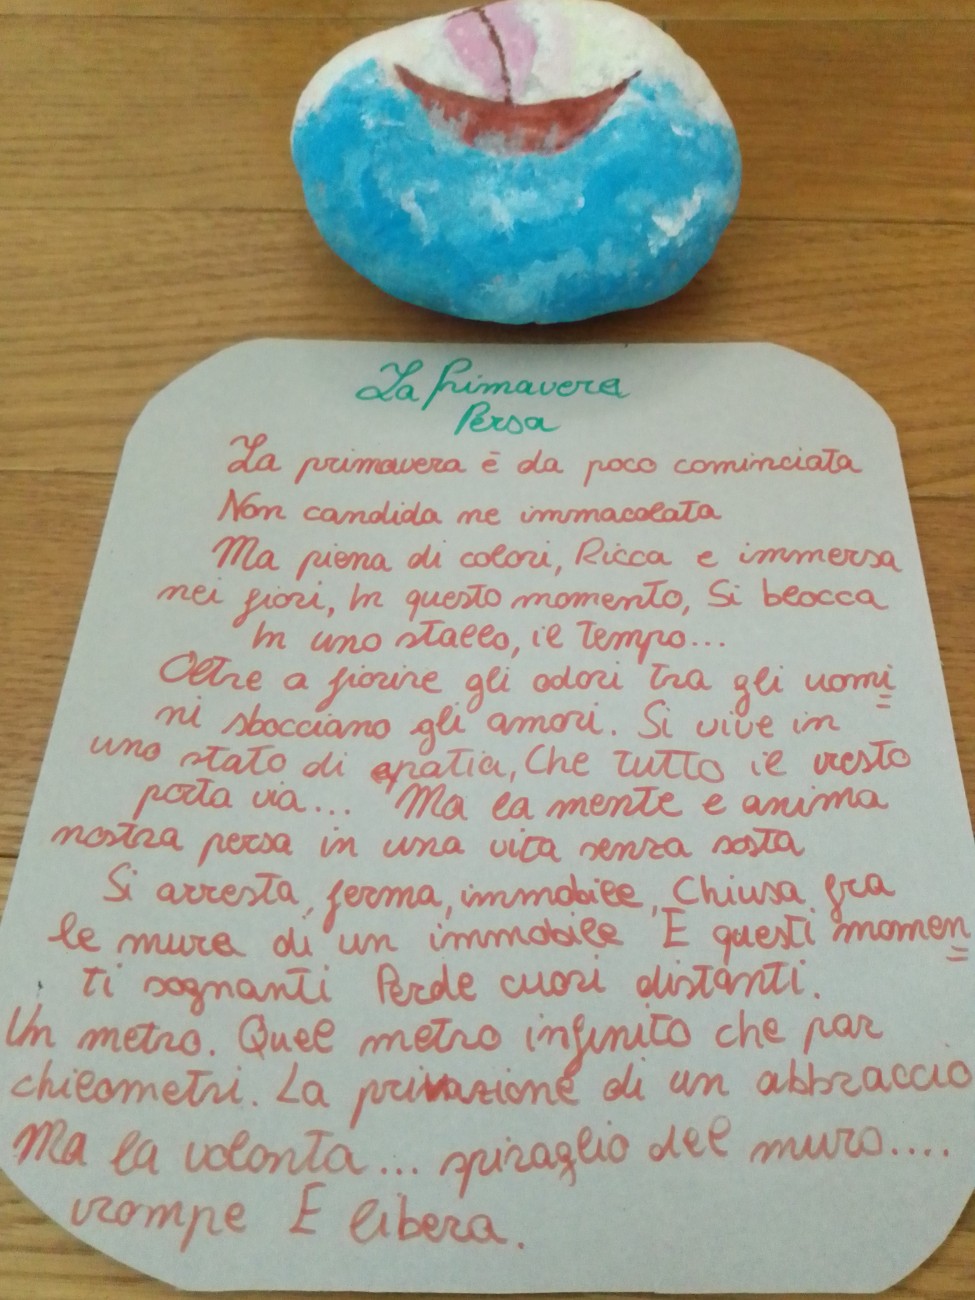 La Primavera
Persa
La primavera è da poco cominciata
Non candida ne immacolata
Ma piena di colori, Ricca e immersa
nei fiori, In questo momento, Si blocca
In uno stallo, il tempo...
Oltre a fiorire gli odori tra gli uomi=
ni sbocciano gli amori. Si vive in
uno stato di apatia, Che tutto il resto
porta via... Ma la mente e anima
nostra persa in una vita senza sosta
Si arresta, ferma, immobile, Chiusa fra
le mura di un immobile E questi momen=
ti sognanti Perde cuori distanti.
Un metro. Quel metro infinito che par
chilometri. La privazione di un abbraccio
Ma la volonta... spiraglio del muro....
rompe E libera.